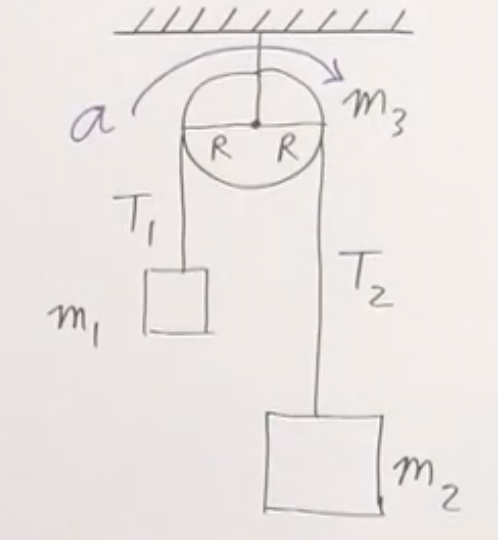 a
m₃
R R
T₁
T₂
m₁
m₂